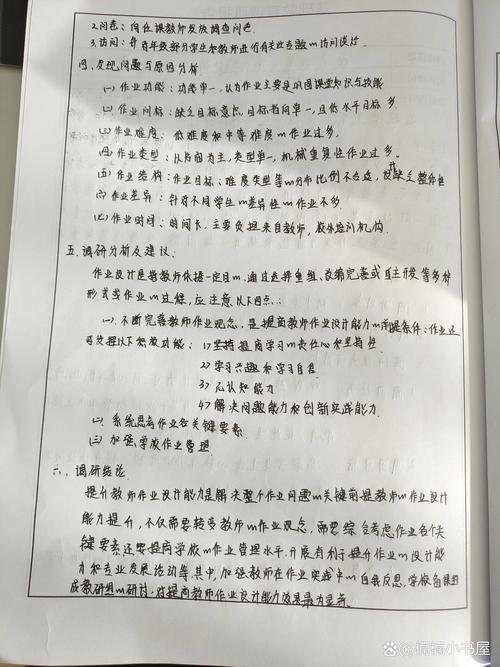 2.问卷：向任课教师发放调查问卷
3.访问：并与年级部分学生和教师进行有关此专题的访谈探讨.
四、发现问题与原因分析
(一) 作业功能：功能单一，认为作业主要是巩固课堂知识与技能
(二) 作业目标：缺乏目标意识，目标指向单一，且低水平目标多
(三) 作业难度：低难度和中等难度的作业过多。
(四) 作业类型：以书面为主，类型单一，机械重复性作业过多。
(五) 作业结构：作业目标、难度、类型等的分布比例不合适，缺乏整体性
(六) 作业差异：针对不同学生的差异性的作业不多
(七) 作业时间：时间长，主要负担来自教师，校外培训机构.
五、调研分析及建议：
作业设计是指教师依据一定目的，通过选择重组、改编完善或自主开发等多种
形式形成作业的过程，应注意以下四点：
(一) 不断完善教师作业观念，是提高教师作业设计能力的前提条件：作业还
可发挥以下多效功能：1) 坚持提高学习的责任心和坚持性
2) 学习兴趣和学习自信
3) 元认知能力
4) 解决问题能力和创新实践能力.
(二) 系统思考作业各关键要素.
(三) 加强学校作业管理
六、调研结论.
提升教师作业设计能力是解决整个作业问题的关键前提，教师的作业设计
能力提升，不仅需要转变教师的作业观念，而要综合考虑作业各个关
键要素，还要提高学校的作业管理水平，开展有利于提升作业的设计能
力和专业发展活动等，其中，加强教师在作业实践中的自我反思，学校备课组
或教研组的研讨，对提高教师作业设计能力效果最为显著.
楠楠小书屋